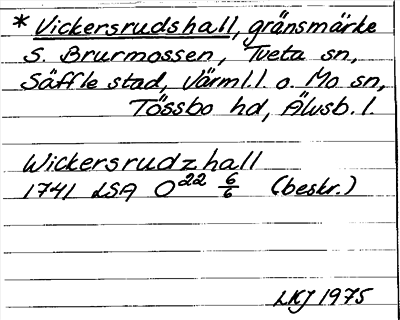 * Vickersrudshall, gränsmärke
S. Brurmossen, Tveta sn,
Säffle stad, Värml.l. o. Mo sn,
Tössbo hd, Älvsb. l.
Wickersrudzhall
1741 LSA O²² 6/6 (beskr.)
LKJ 1975